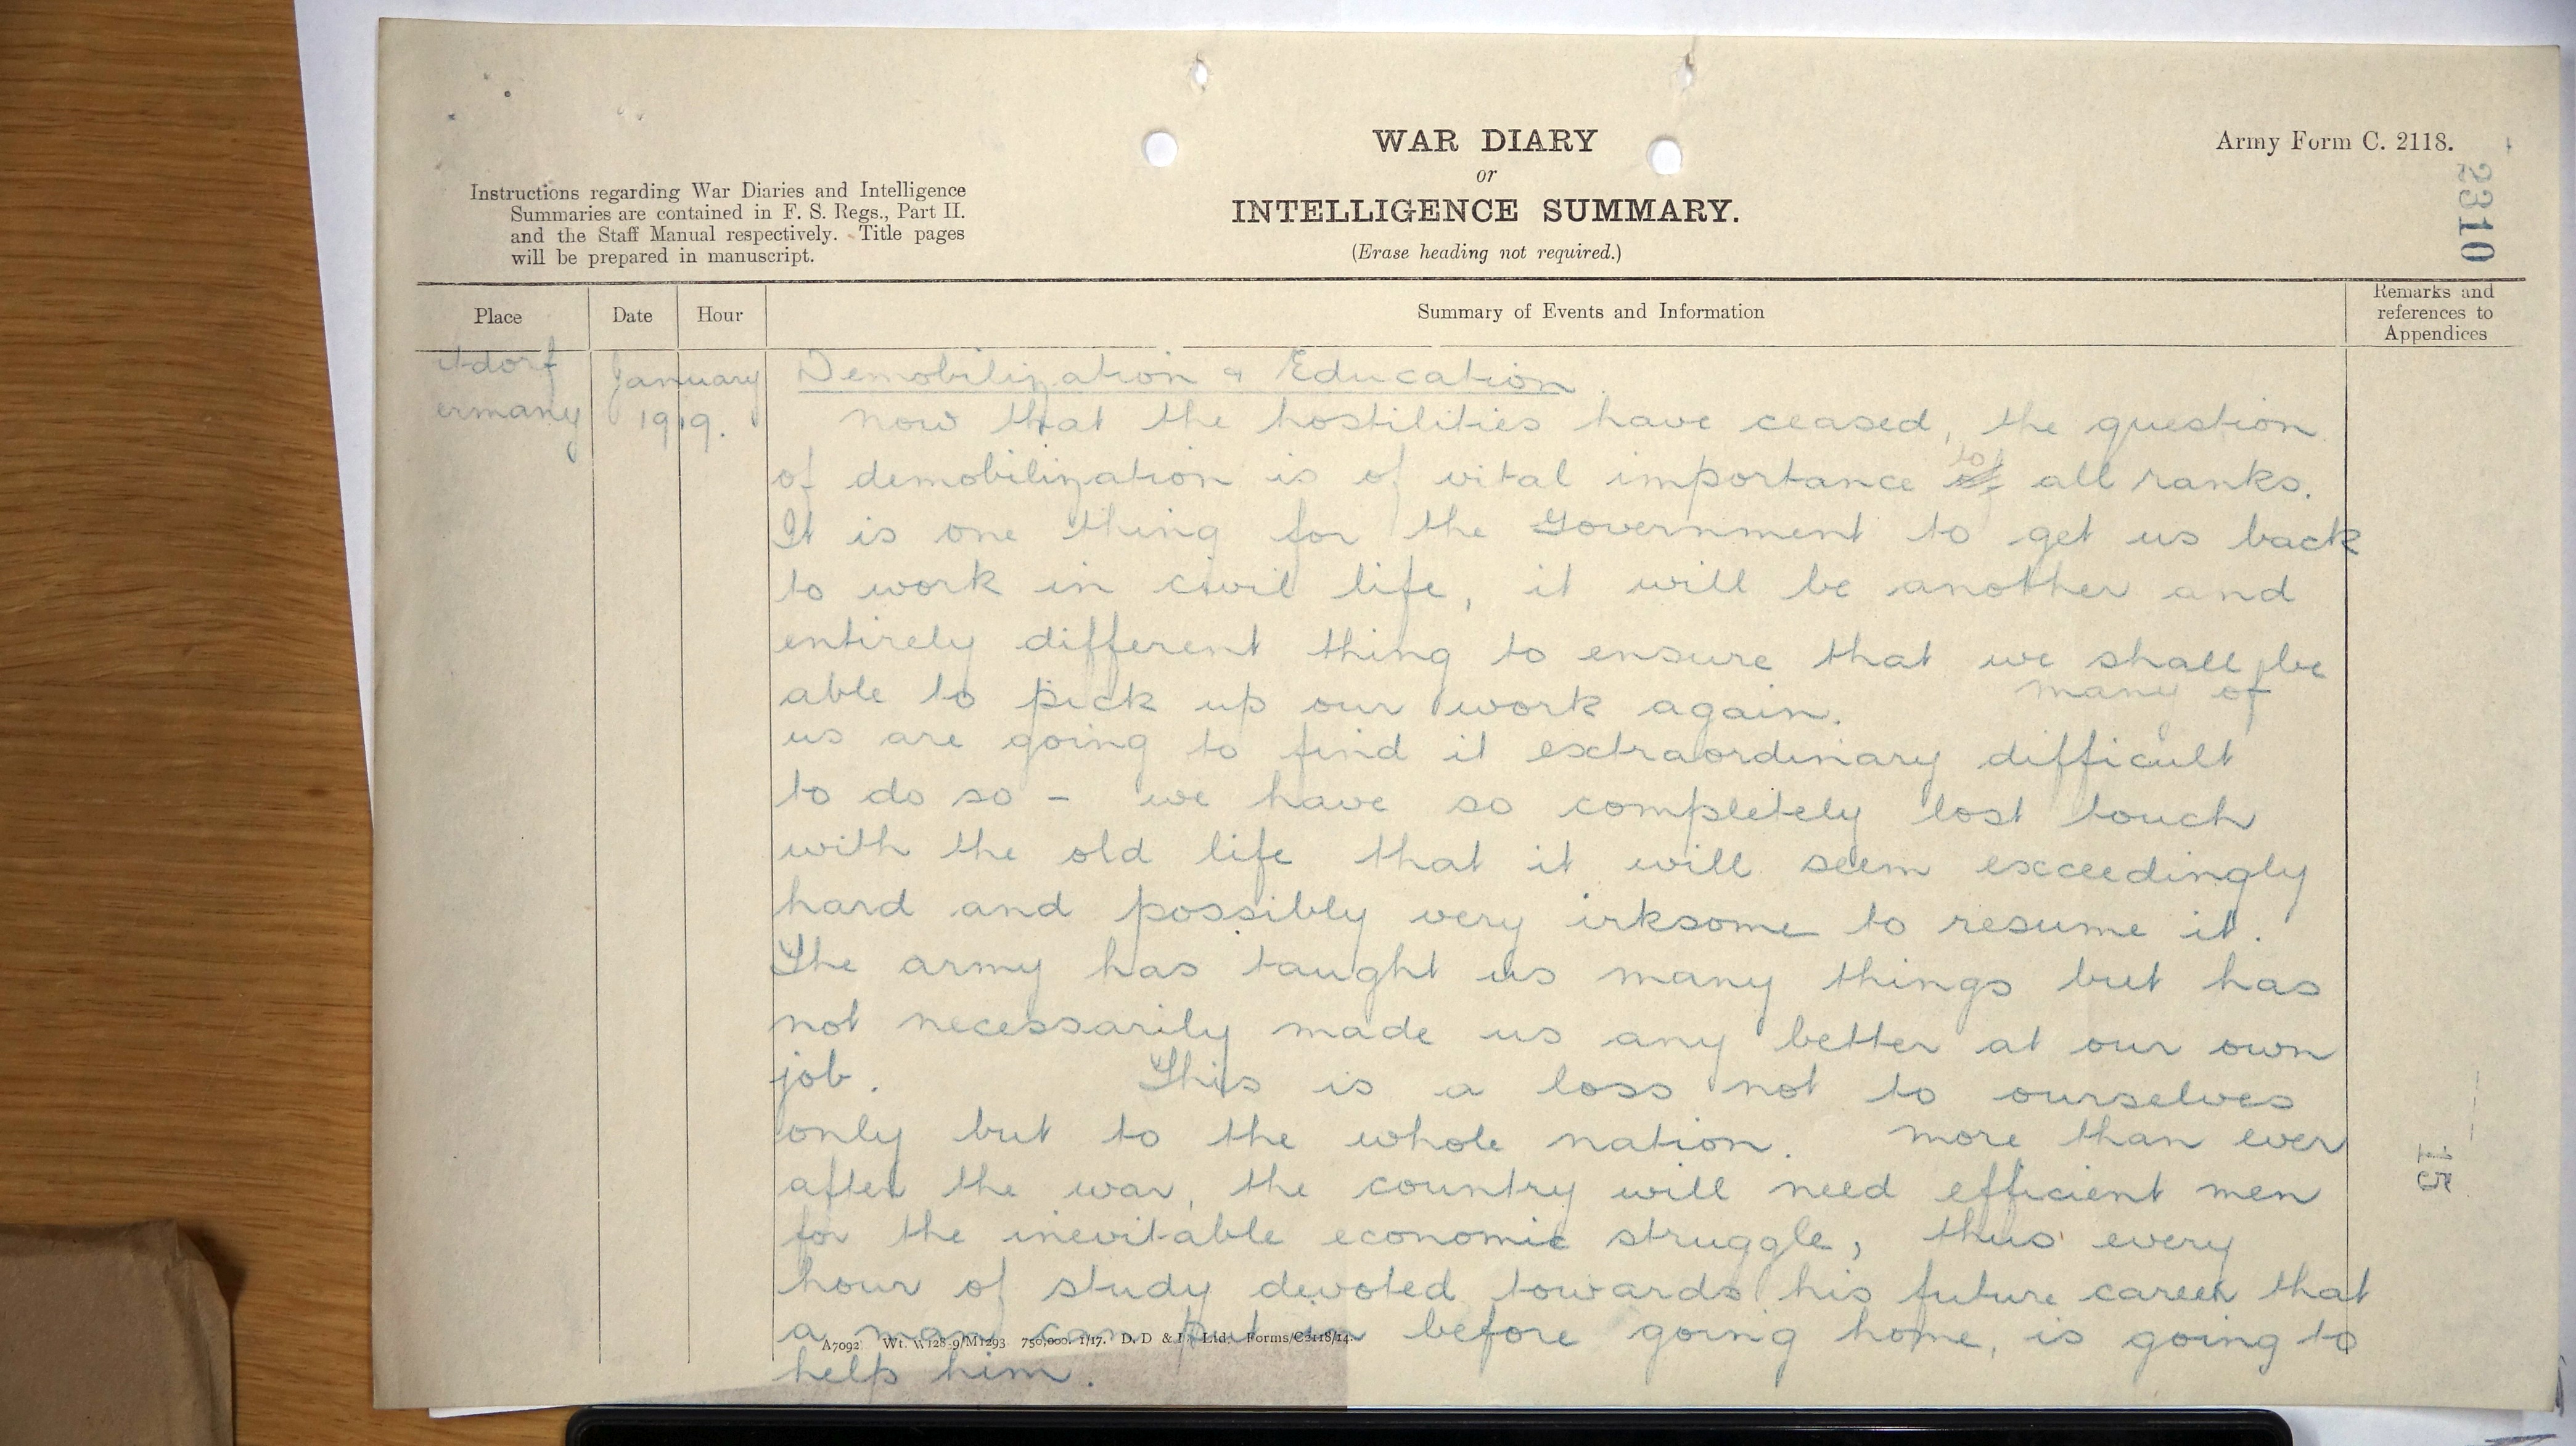 WAR DIARY
or
INTELLIGENCE SUMMARY.
(Erase heading not required.)
Army Form C. 2118.
2310
Instructions regarding War Diaries and Intelligence
Summaries are contained in F. S. Regs., Part II.
and the Staff Manual respectively. Title pages
will be prepared in manuscript.
Place
Date
Hour
Summary of Events and Information
Remarks and
references to
Appendices
tdorf
ermany
January
1919.
Demobilization & Education.
Now that the hostilities have ceased, the question
of demobilization is of vital importance to all ranks.
It is one thing for the Government to get us back
to work in civil life, it will be another and
entirely different thing to ensure that we shall be
able to pick up our work again. Many of
us are going to find it extraordinary difficult
to do so - we have so completely lost touch
with the old life that it will seem exceedingly
hard and possibly very irksome to resume it.
The army has taught us many things but has
not necessarily made us any better at our own
job. This is a loss not to ourselves
only but to the whole nation. More than ever
after the war, the country will need efficient men
for the inevitable economic struggle, thus every
hour of study devoted towards his future career that
a man can put in before going home, is going to
help him.
15
A7092 Wt. W128 9/M1293 750,000. 1/17. D. D & L. Ltd. Forms/C2118/14.